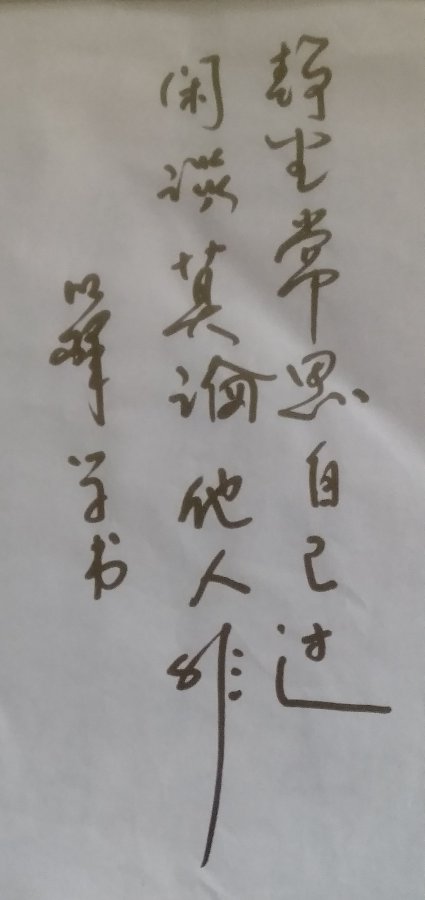 静坐常思自己过
闲谈莫论他人非
学书